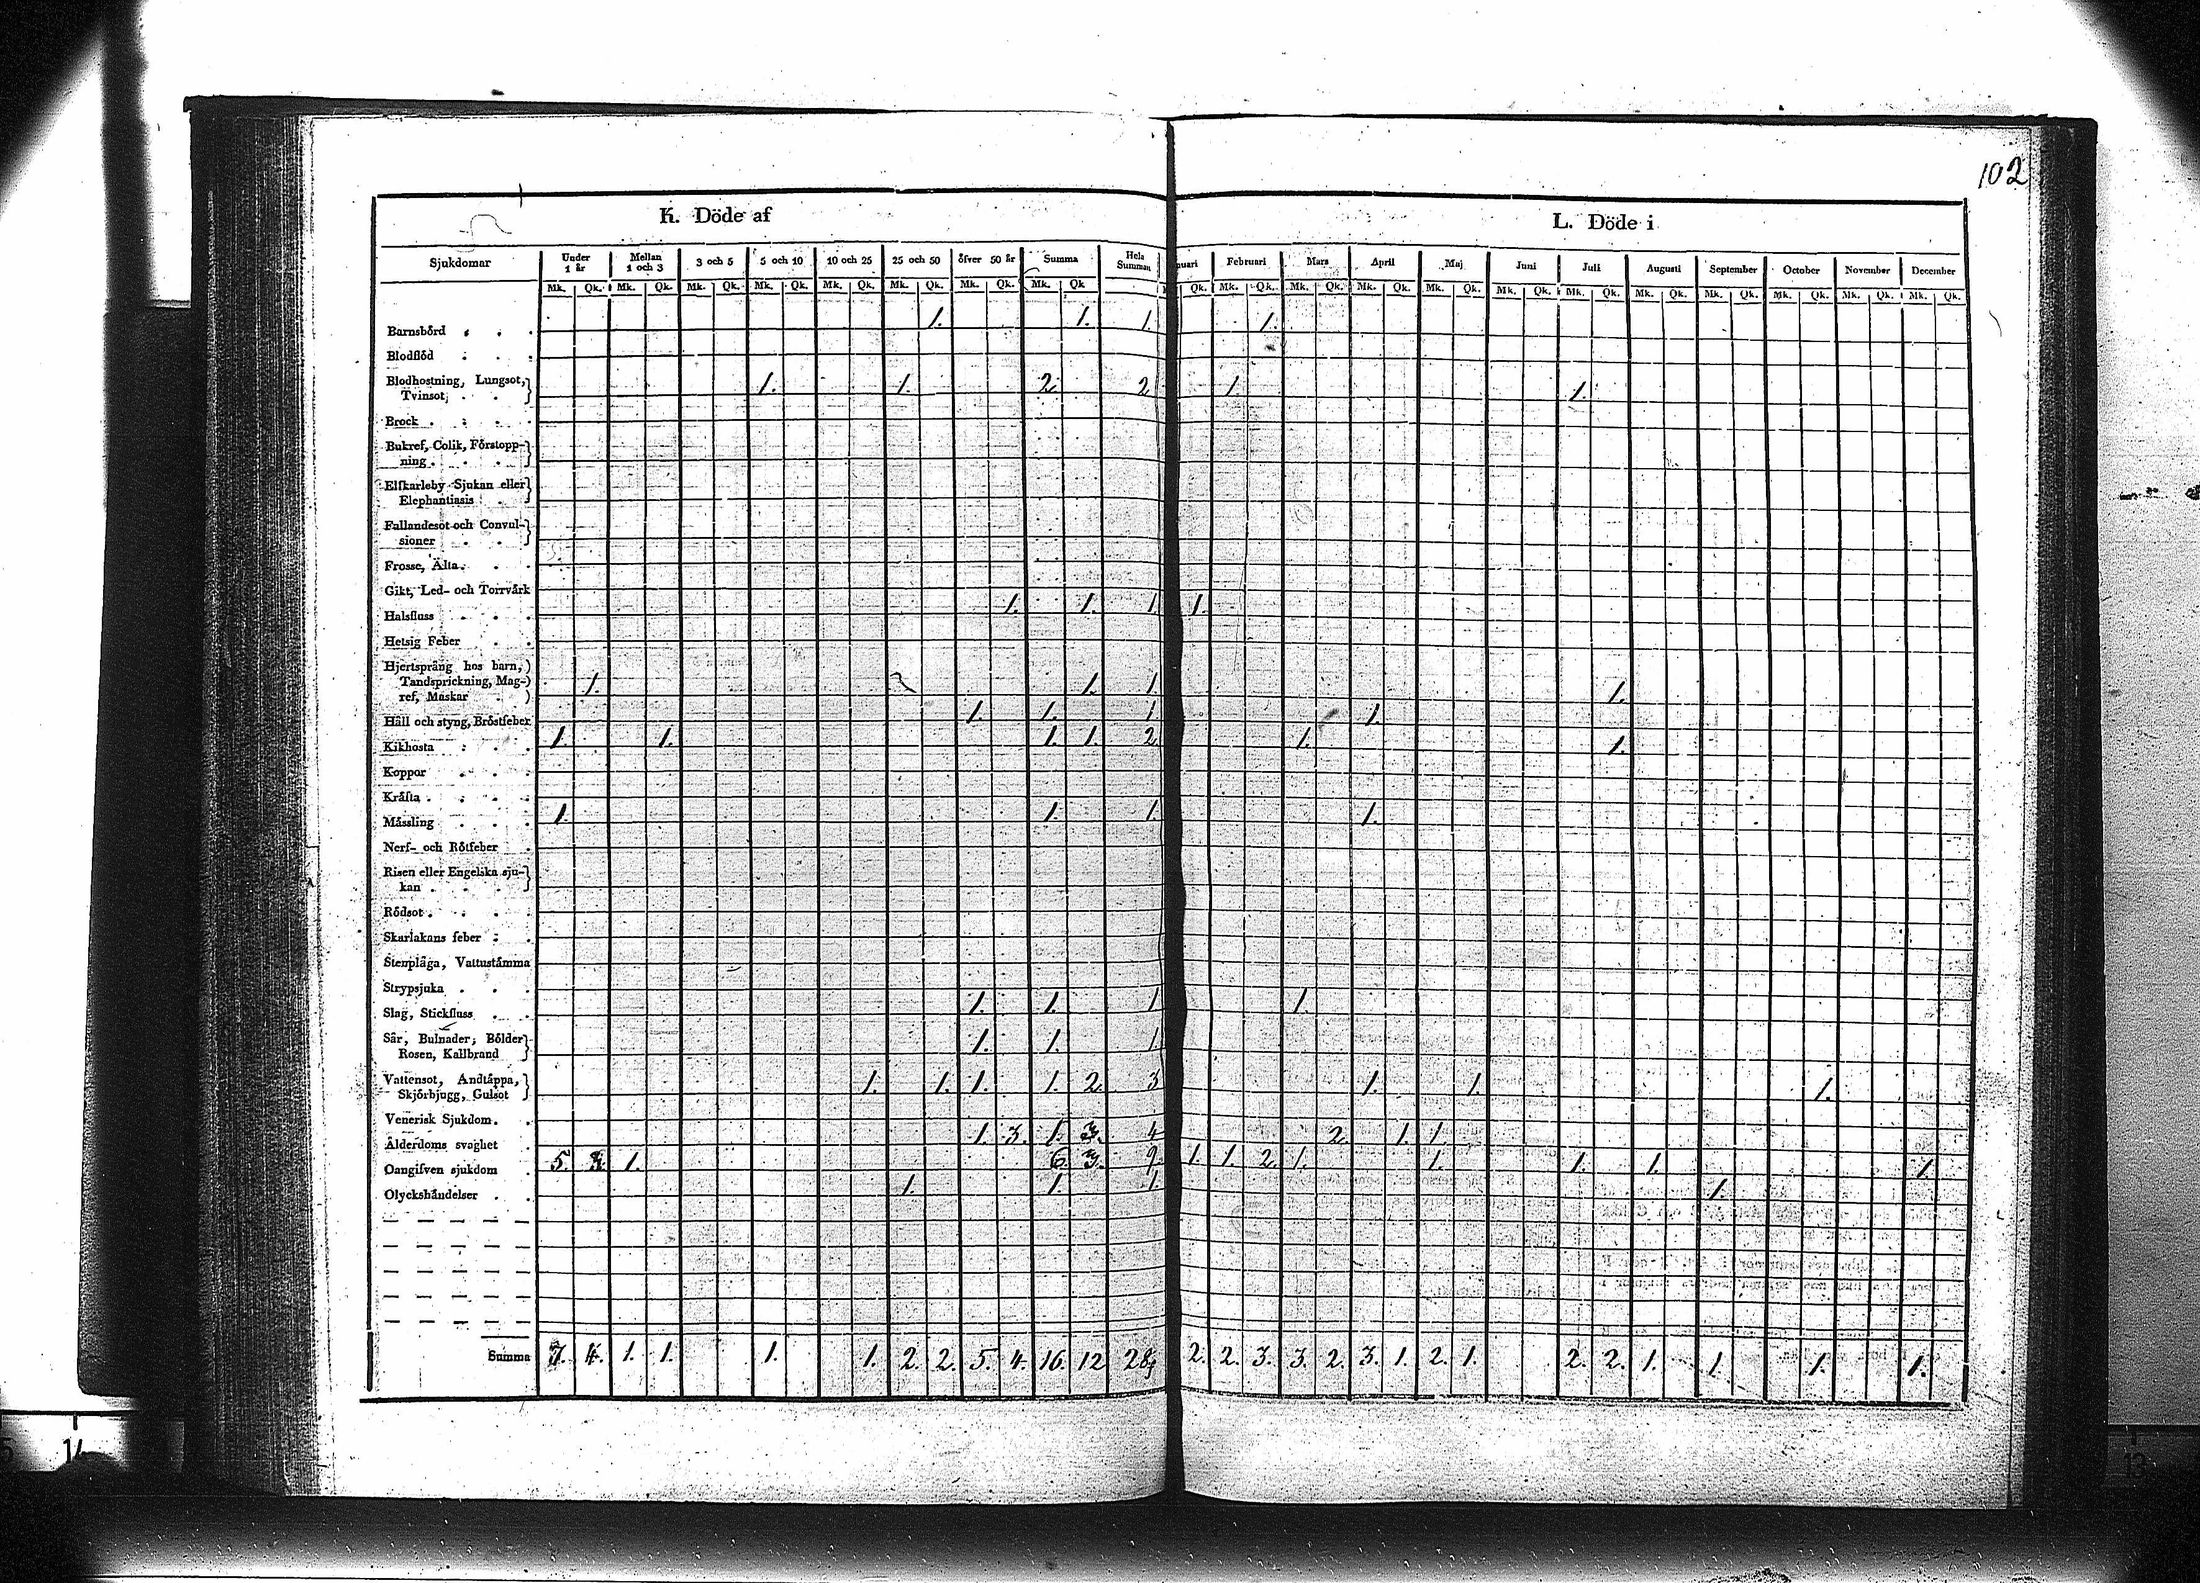 102
K. Döde af
L. Döde i
Sjukdomar Under 1 år Mellan 1 och 3 3 och 5 5 och 10 10 och 25 25 och 50 öfver 50 år Summa Hela Summan
nuari Februari Mars April Maj Juni Juli Augusti September October November December
Mk. Qk. Mk. Qk. Mk. Qk. Mk. Qk. Mk. Qk. Mk. Qk. Mk. Qk. Mk. Qk
Qk. Mk. Qk. Mk. Qk. Mk. Qk. Mk. Qk. Mk. Qk. Mk. Qk. Mk. Qk. Mk. Qk. Mk. Qk. Mk. Qk. Mk. Qk.
Barnsbörd 1. 1. 1 1.
Blodflöd
Blodhostning, Lungsot,
Tvinsot, 1. 1. 2. 2 1. 1.
Brock
Bukref, Colik, Förstopp-
ning
Elfkarleby Sjukan eller
Elephantiasis
Fallandesot och Convul-
sioner
Frosse, Älta
Gikt, Led- och Torrvärk
Halsfluss 1. 1. 1 1.
Hetsig Feber
Hjertspräng hos barn,
Tandsprickning, Mag-
ref, Maskar 1. 1. 1. 1.
Håll och styng, Bröstfeber 1. 1. 1 1.
Kikhosta 1. 1. 1. 1. 2 1. 1.
Koppor
Kräfta
Mässling 1. 1. 1. 1.
Nerf- och Rötfeber
Risen eller Engelska sju-
kan
Rödsot
Skarlakans feber
Stenplåga, Vattustämma
Strypsjuka
Slag, Stickfluss 1. 1. 1 1.
Sår, Bulnader, Bölder
Rosen, Kallbrand 1. 1. 1
Vattensot, Andtäppa,
Skjörbjugg, Gulsot 1. 1. 1. 1. 2. 3 1. 1. 1.
Venerisk Sjukdom
Ålderdoms svaghet 1. 3. 1. 3. 4 2. 1. 1.
Oangifven sjukdom 5. 3. 1. 6. 3. 9. 1. 1. 2. 1. 1. 1. 1. 1.
Olyckshändelser 1. 1. 1 1.
Summa 7. 4. 1. 1. 1. 1. 2. 2. 5. 4. 16. 12 28 2. 2. 3. 3. 2. 3. 1. 2. 1. 2. 2. 1. 1. 1. 1.
14
13